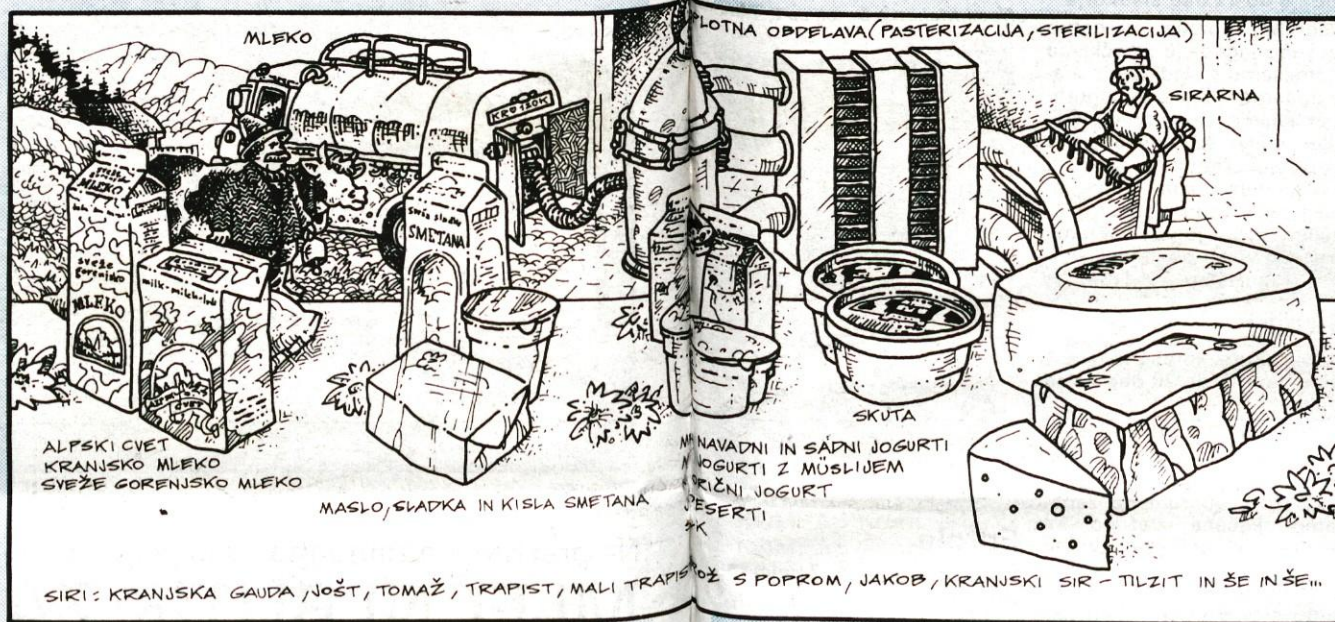 MLEKO
PLOTNA OBDELAVA (PASTERIZACIJA, STERILIZACIJA)
SIRARNA
KR 0 120K
MLEKO
sveže
gorenjsko
MLEKO
milk-milch-lait
sladka
SMETANA
SKUTA
ALPSKI CVET
KRANJSKO MLEKO
SVEŽE GORENJSKO MLEKO
MASLO, SLADKA IN KISLA SMETANA
NAVADNI IN SADNI JOGURTI
JOGURTI Z MÜSLIJEM
JOGURT
SIRI: KRANJSKA GAUDA, JOŠT, TOMAŽ, TRAPIST, MALI TRAPIST
S POPROM, JAKOB, KRANJSKI SIR - TILZIT IN ŠE IN ŠE...